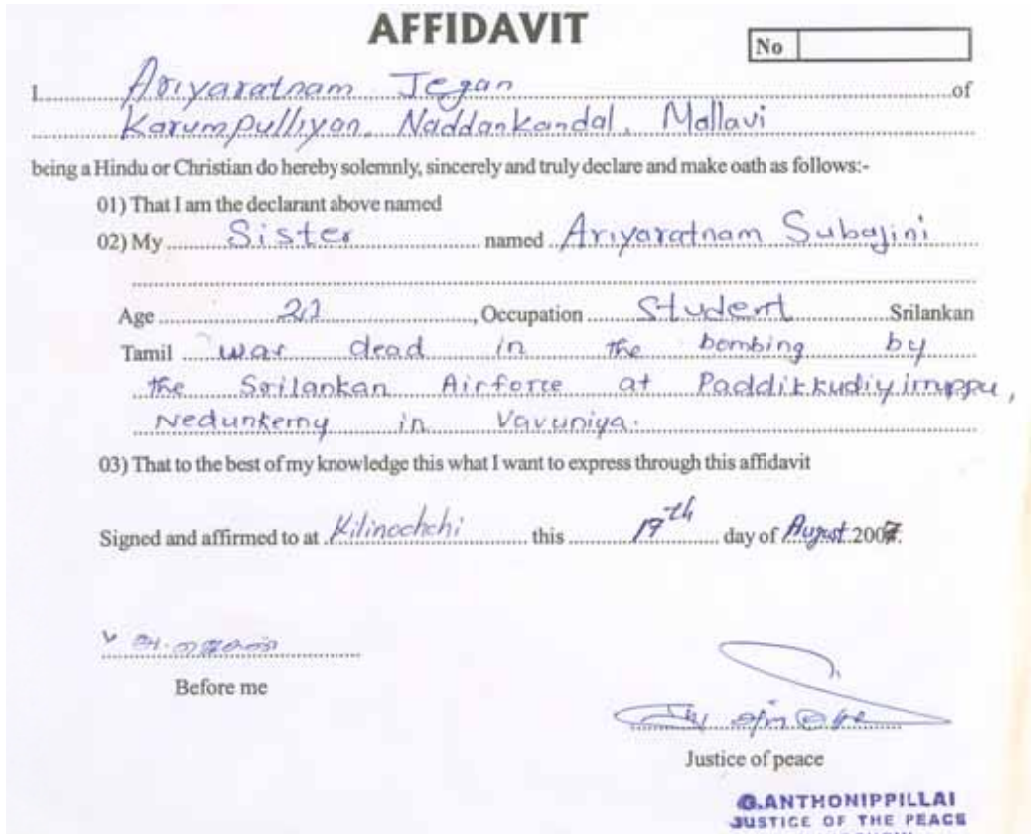 AFFIDAVIT
No
I Ariyaratnam Jegan of
Karumpulliyan, Naddankandal, Mallavi
being a Hindu or Christian do hereby solemnly, sincerely and truly declare and make oath as follows:-
01) That I am the declarant above named
02) My Sister named Ariyaratnam Subajini
Age , Occupation Student Srilankan
Tamil was dead in the bombing by
the Srilankan Airforce at Paddikkudiyirruppu,
Nedunkerny in Vavuniya.
03) That to the best of my knowledge this what I want to express through this affidavit
Signed and affirmed to at Kilinochchi this 19th day of August 2007.
Before me
Justice of peace
G.ANTHONIPPILLAI
JUSTICE OF THE PEACE